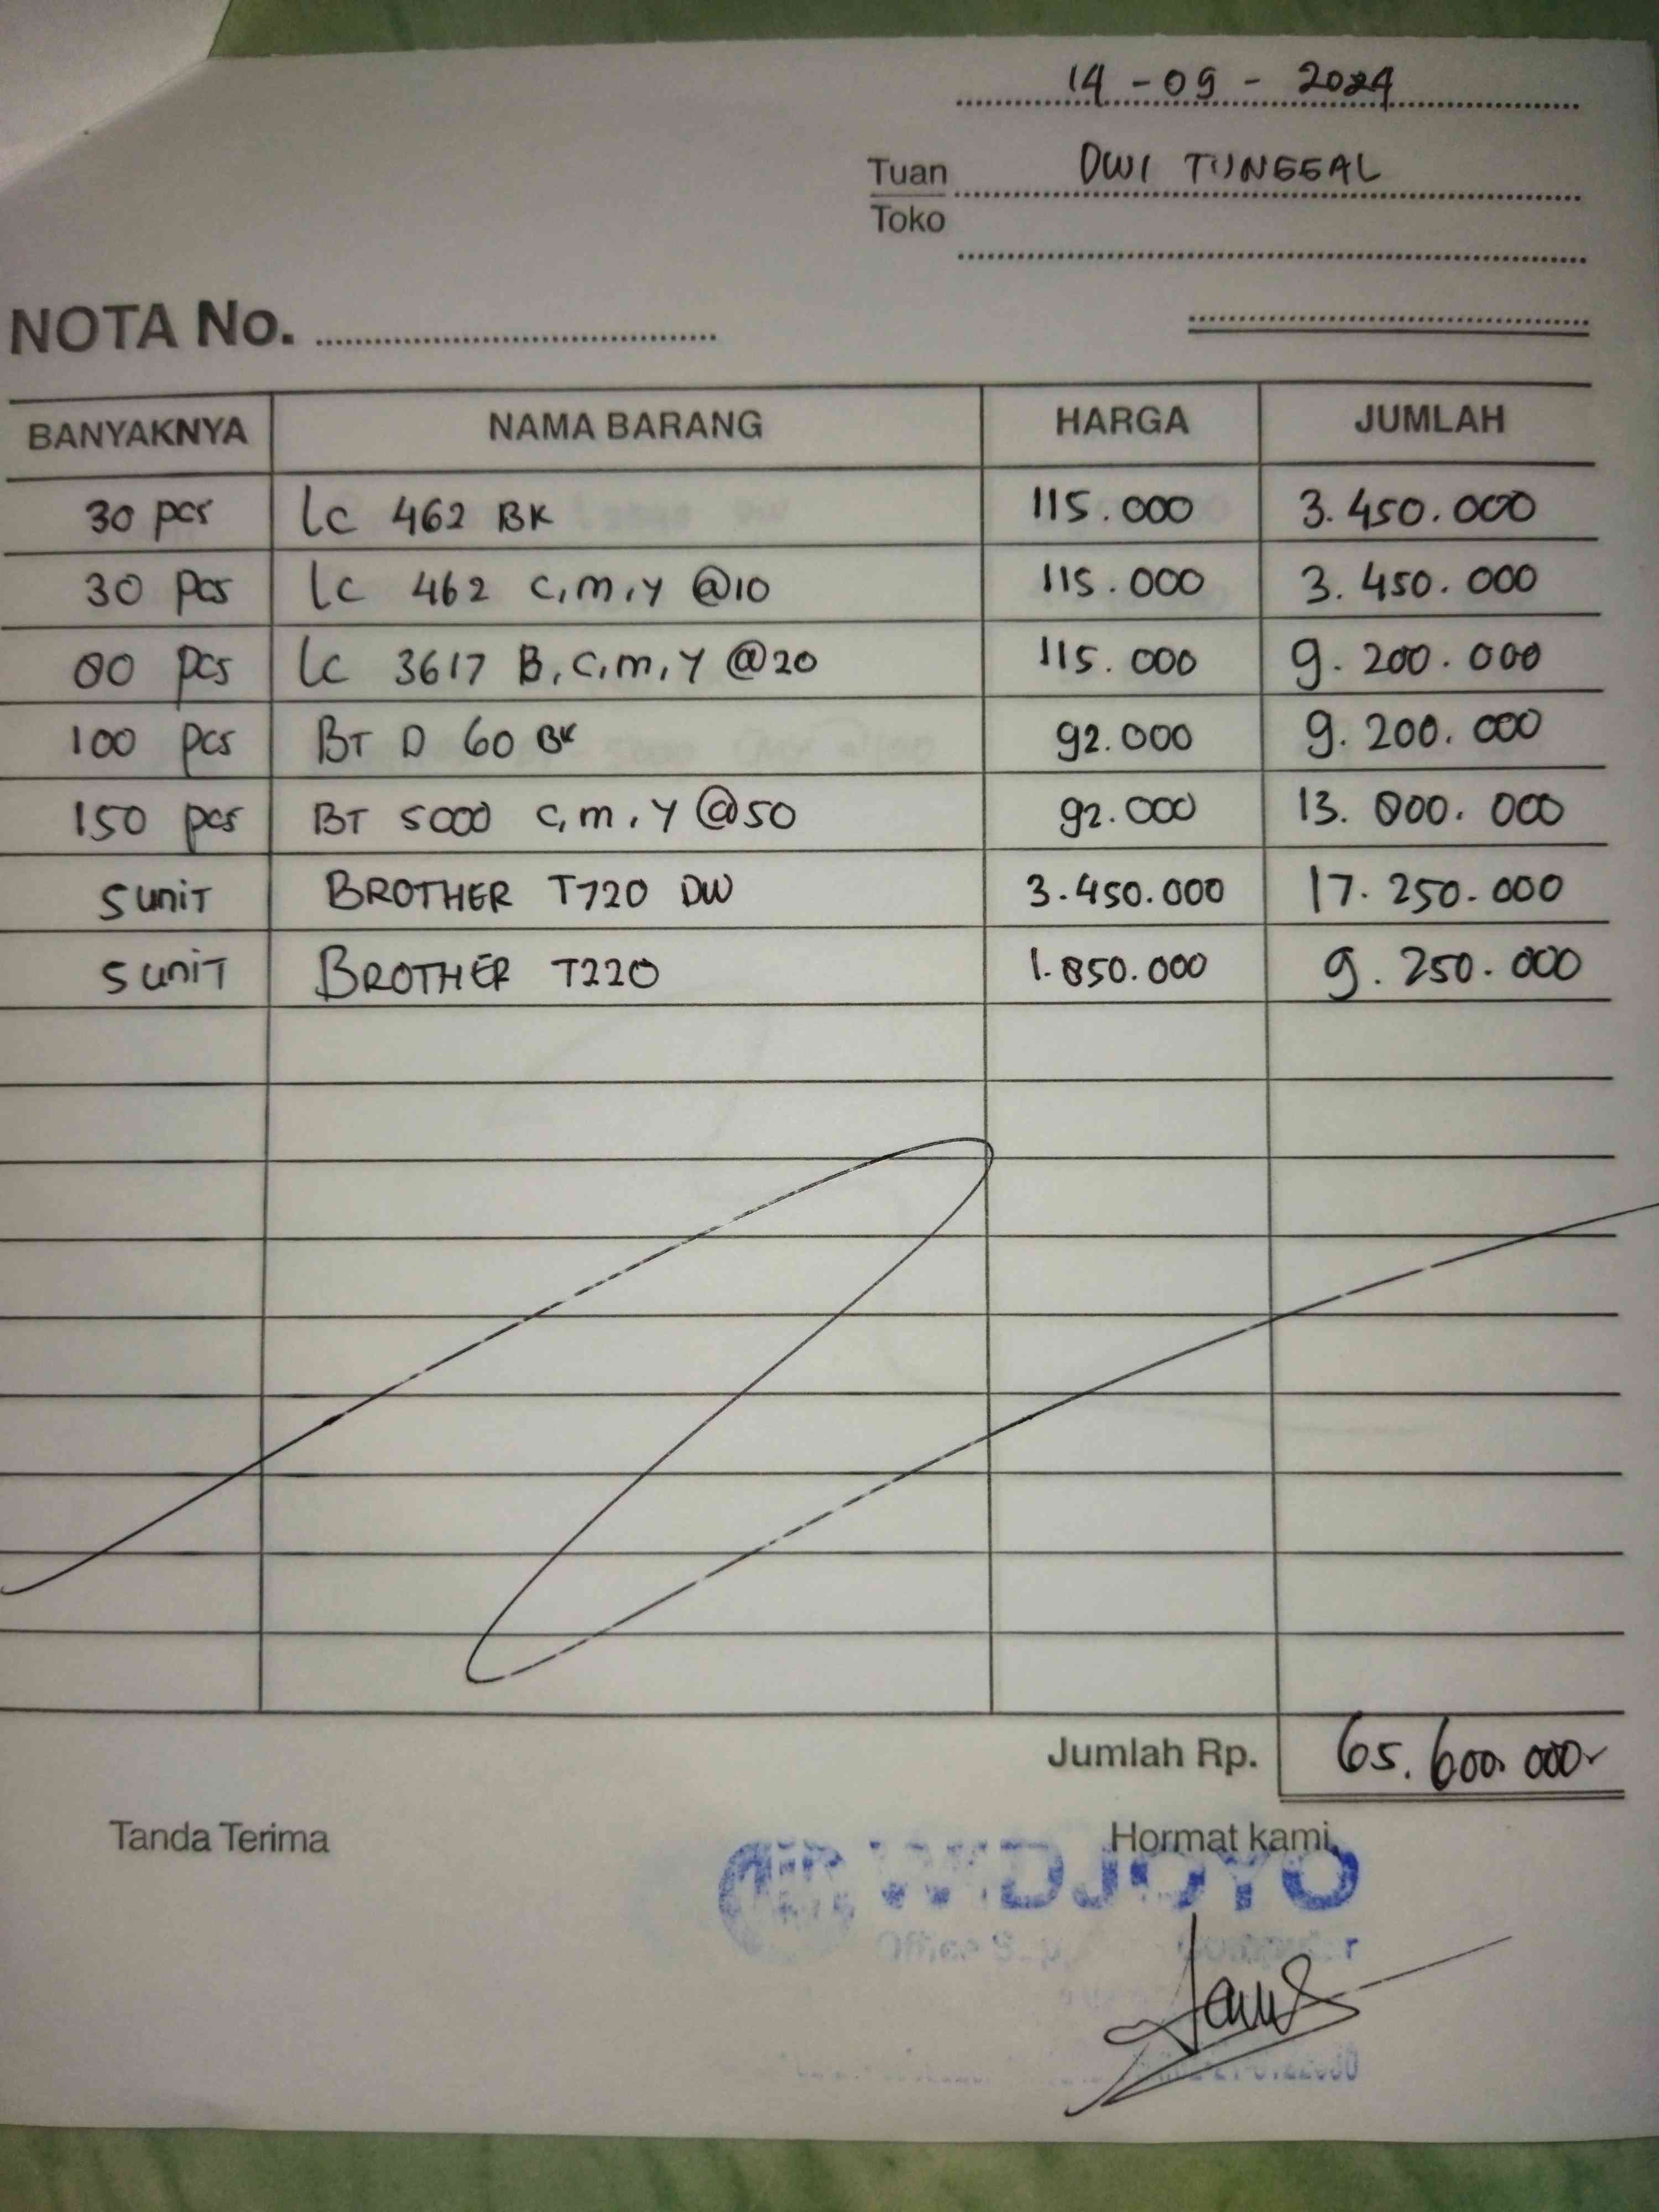 14 - 09 - 2024
Tuan DWI TUNGGAL
Toko
NOTA No.
BANYAKNYA NAMA BARANG HARGA JUMLAH
30 pcs LC 462 BK 115.000 3.450.000
30 pcs LC 462 C,M,Y @10 115.000 3.450.000
80 pcs LC 3617 B,C,M,Y @20 115.000 9.200.000
100 pcs BT D 60 BK 92.000 9.200.000
150 pcs BT 5000 C,M,Y @50 92.000 13.800.000
5 UNIT BROTHER T720 DW 3.450.000 17.250.000
5 UNIT BROTHER T220 1.850.000 9.250.000
Jumlah Rp. 65.600.000
Tanda Terima Hormat kami,
WIDJOYO
Office